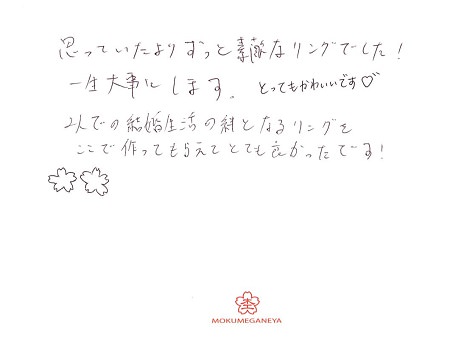 思っていたよりずっと素敵なリングでした!
一生大事にします。 とってもかわいいです♡
2人での結婚生活の絆となるリングを
ここで作ってもらえてとても良かったです!
MOKUMEGANEYA